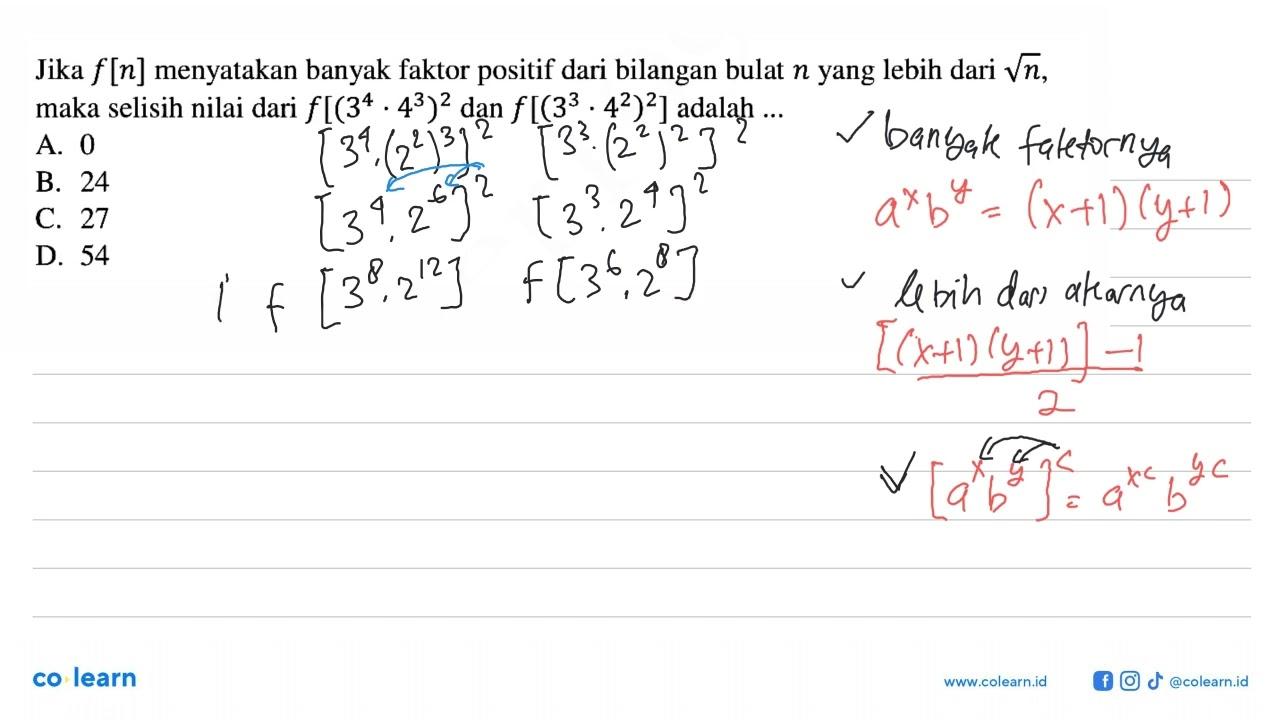 Jika f[n] menyatakan banyak faktor positif dari bilangan bulat n yang lebih dari √n,
maka selisih nilai dari f[(3⁴ · 4³)² dan f[(3³ · 4²)²] adalah ...
A. 0
B. 24
C. 27
D. 54
[3⁴.(2²)³]² [3³.(2²)²]²
[3⁴.2⁶]² [3³.2⁴]²
f [3⁸.2¹²] f[3⁶.2⁸]
✓ banyak faktornya
aˣbʸ = (x+1)(y+1)
✓ lebih dari akarnya
[(x+1)(y+1)] -1
2
✓ [aˣbʸ]ᶜ = aˣᶜ bʸᶜ
co learn
www.colearn.id
@colearn.id